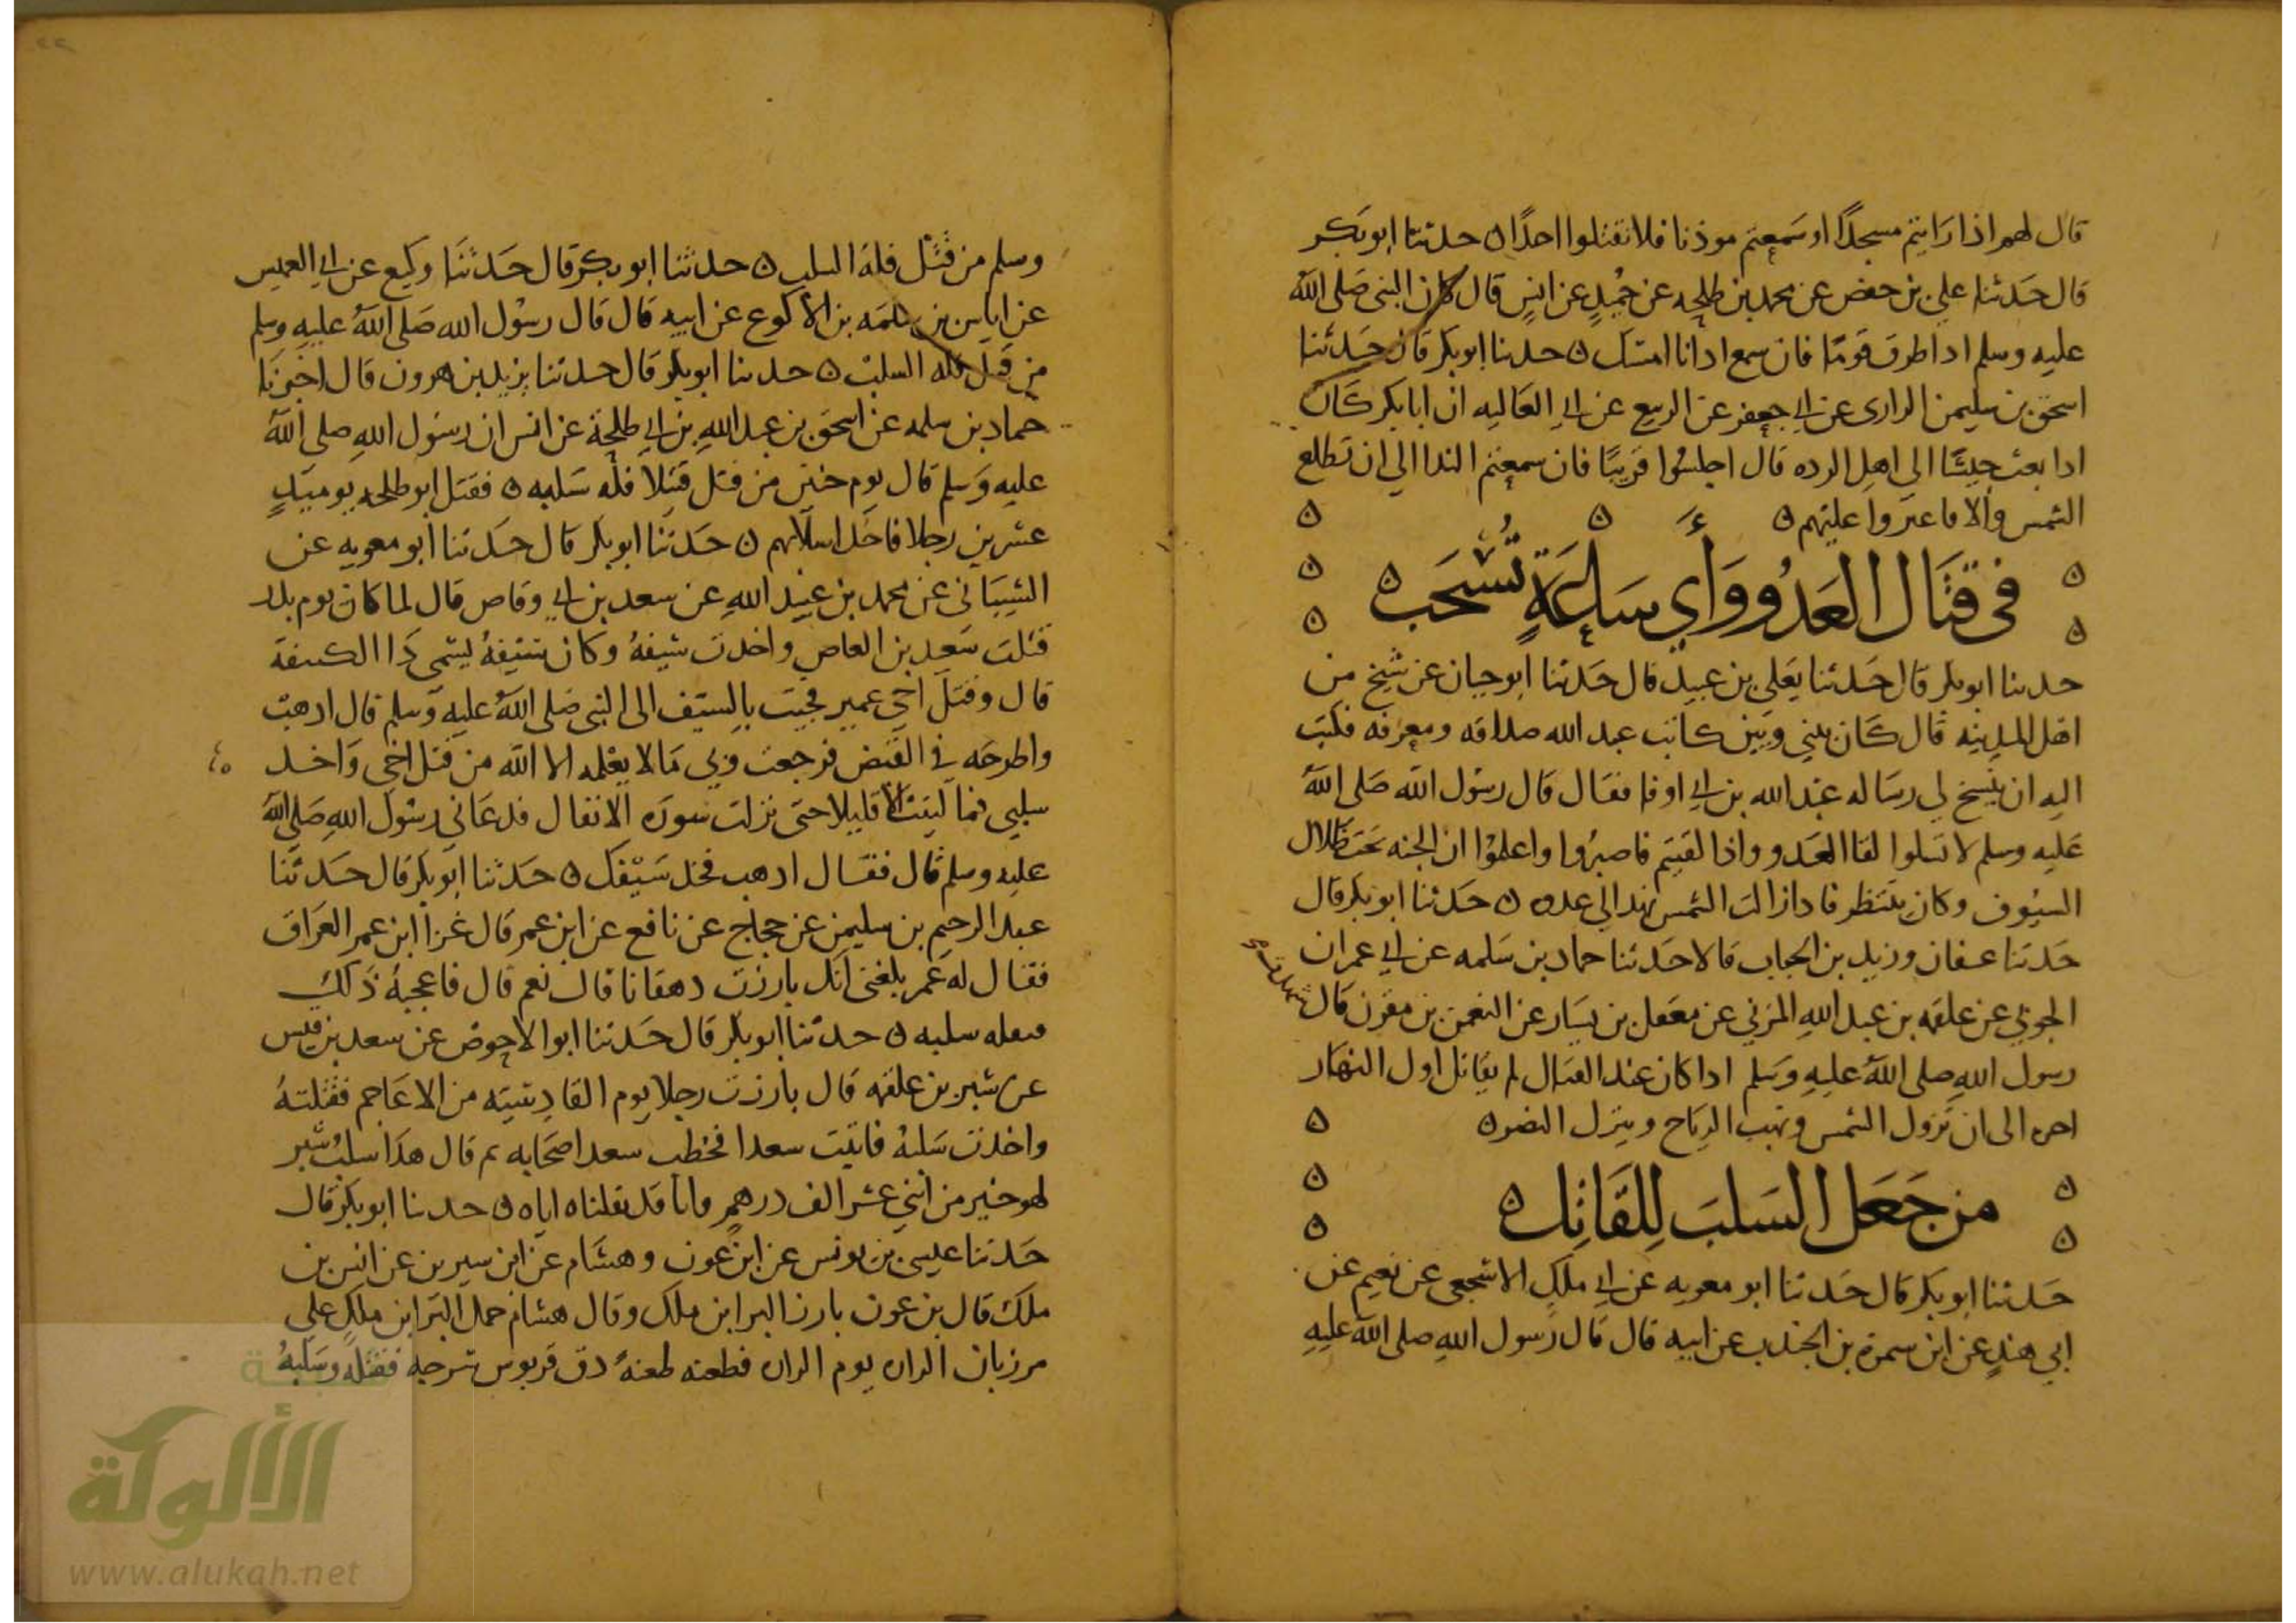 قال لهم اذا رايتم مسجدًا او سمعتم موذنا فلا تقتلوا احدًا ٥ حدثنا ابو بكر
قال حدثنا علي بن حفص عن محمد بن طلحه عن حُميدٍ عن انسٍ قال كان النبي صلى اللهُ
عليه وسلم اذا طرق قومًا فان سمع اذانا امسك ٥ حدثنا ابو بكر قال حدثنا
اسحق بن سليمن الرازى عن ابي جعفر عن الربيع عن ابي العاليه ان ابا بكر كان
اذا بعث جيشًا الى اهل الرده قال اجلسُوا قريبًا فان سمعتم الندا الى ان تطلع
الشمس والا فاعيروا عليهم ٥
في قتال العدُو وأي ساعةٍ تُستحَب ٥
حدثنا ابو بكر قال حدثنا يعلى بن عبيد قال حدثنا ابو حيان عن شيخ من
اهل المدينه قال كان بيني وبين كاتب عبد الله صداقه ومعرفه فكتبت
اليه ان ينسخ لي رساله عبد الله بن ابي اوفا فقال قال رسول الله صلى اللهُ
عليه وسلم لا تسلوا لقا العدو واذا لقيتم فاصبرُوا واعلموا ان الجنه تحت ظلال
السيُوف وكان ينتظر فاذا زالت الشمس نهد الى عدوه ٥ حدثنا ابو بكر قال
حدثنا عفان وزيد بن الحباب قالا حدثنا حماد بن سلمه عن ابي عمران
الجوني عن علقمه بن عبد اللهِ المزني عن معقل بن يسار عن النعمن بن مقرن قال شهدت
رسول اللهِ صلى اللهُ عليهِ وسلم اذا كان عند القتال لم يقاتل اول النهار
اخره الى ان تزول الشمس وتهب الرياح وينزل النصر ٥
من جَعَل السَلبَ لِلقَاتِل ٥
حدثنا ابو بكر قال حدثنا ابو معويه عن ابي ملكٍ الاشجعي عن نعيم عن
ابي هندٍ عن ابن سمرة بن الجندب عن ابيه قال قال رسول اللهِ صلى اللهُ عليهِ
وسلم من قتل فلهُ السلب ٥ حدثنا ابو بكر قال حدثنا وكيع عن ابي العميس
عن اياس بن سلمه بن الاكوع عن ابيه قال قال رسُول الله صلى اللهُ عليهِ وسلم
من قتل فله السلب ٥ حدثنا ابو بكر قال حدثنا يزيد بن هرون قال اخبرنا
حماد بن سلمه عن اسحق بن عبد اللهِ بن ابي طلحة عن انس ان رسُول اللهِ صلى اللهُ
عليهِ وسلم قال يوم حنين من قتل قتيلاً فله سَلبه ٥ فقتل ابو طلحه يوميذٍ
عشرين رجلا فاخذ اسلابهم ٥ حدثنا ابو بكر قال حدثنا ابو معويه عن
الشيباني عن محمد بن عبيد اللهِ عن سعد بن ابي وقاص قال لما كان يوم بدر
قتلت سعيد بن العاص واخذت سيفهُ وكان سيفهُ يسمى ذا الكتيفة
قال وقتل اخي عمير فجيت بالسيف الى النبي صلى اللهُ عليهِ وسلم قال اذهب
واطرحه في القبض فرجعت وبي ما لا يعلمه الا الله من قتل اخي واخذ
سلبي فما لبثت الا قليلا حتى نزلت سورة الانفال فدعاني رسُول اللهِ صلى اللهُ
عليه وسلم قال فقال اذهب فخذ سَيفك ٥ حدثنا ابو بكر قال حدثنا
عبد الرحيم بن سليمن عن حجاج عن نافع عن ابن عمر قال غزا ابن عمر العراق
فقال له عمر بلغني انك بارزت دهقانا قال نعم قال فاعجبهُ ذلك
فنفله سلبه ٥ حدثنا ابو بكر قال حدثنا ابو الاحوص عن سعد بن قيس
عن شبر بن علقمه قال بارزت رجلا يوم القادِسيَه من الاعاجم فقتلتهُ
واخذت سَلبهُ فاتيت سعدا فخطب سعد اصحابه ثم قال هذا سلبُ شبر
لهو خير من اثني عشر الف درهمٍ وانا قد نفلناه اياه ٥ حدثنا ابو بكر قال
حدثنا عيسى بن يونس عن ابن عون وهشام عن ابن سيرين عن انس بن
ملك قال بن عون بارز البرا ابن ملك وقال هشام حمل البرا ابن ملك على
مرزبان الزاره يوم الزاره فطعنه طعنهً دق قربوس سرجه فقتله وسَلبهُ
الألوكة
www.alukah.net